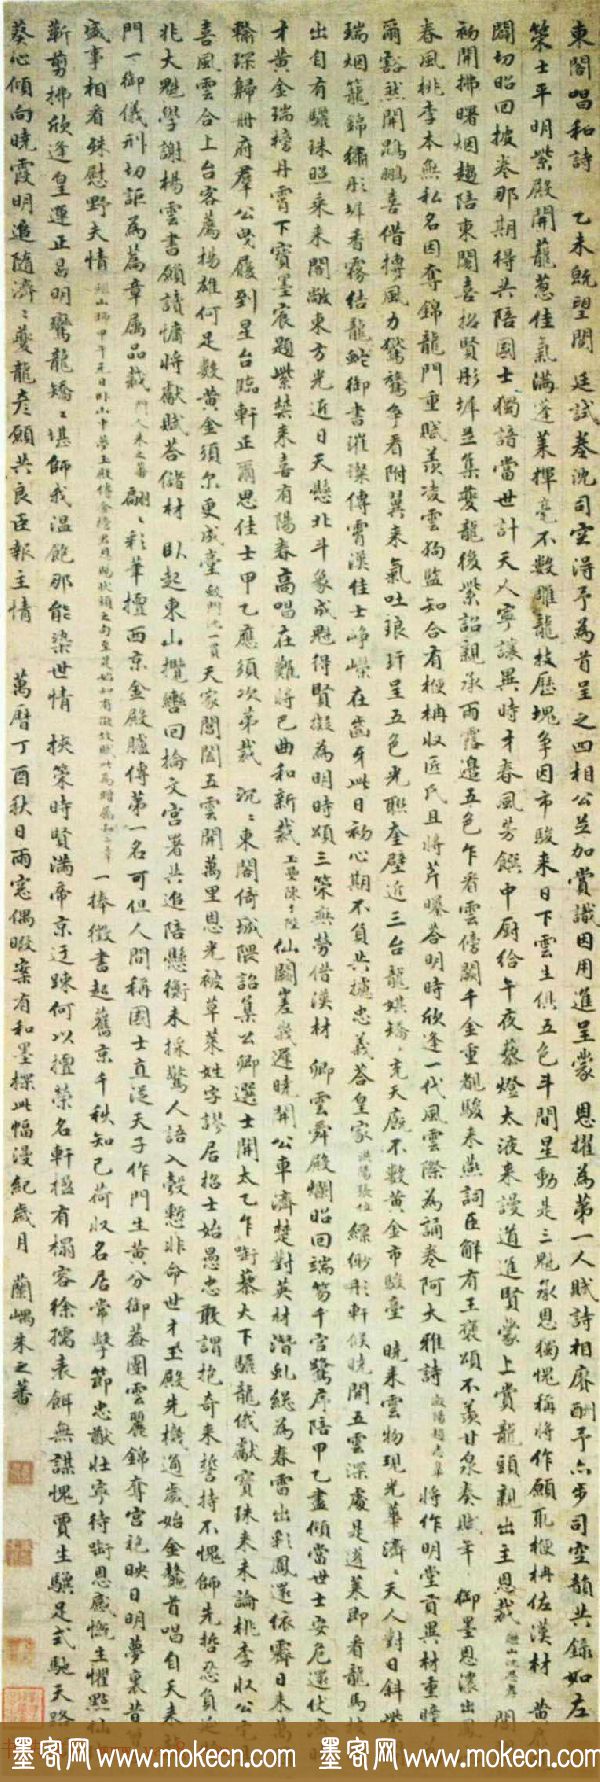 東閣唱和詩 乙未既望閣 廷試卷沈司空得予為首呈之四相公並加賞識因用進呈蒙 恩擢為第一人賦詩相麻酬予亦步司空韻共錄如左
策士平明紫殿開蘢蔥佳氣滿蓬萊揮毫不數雕龍技歷塊爭因市駿來日下雲生俱五色斗間星動是三魁承恩獨愧稱將作願取楩柟佐漢材 黃
闢切昭回披卷那期得共陪國士獨語當世計天人寧讓異時才春風芳饌中廚給午夜藜燈太液來謾道進賢蒙上賞龍頭親出主恩裁 閶
初開拂曙烟趨陪東閣喜招賢彤墀並集夔龍後紫詔親承雨露邊五色乍看雲傍闕千金重覩駿來燕詞臣解有王褒頌不羨甘泉奏賦年 御墨恩濃出
春風桃李本無私名因奪錦龍門重賦羨凌雲狗監知合有楩柟收匠氏且將芹曝答明時欣逢一代風雲際為誦卷阿大雅詩 將作明堂貢異材重瞳
爾豁然開鵾鵬喜借摶風力鸞鷟爭看附翼來氣吐琅玕呈五色光聯奎壁近三台龍媒矯矯充天廄不數黃金市駿臺 曉來雲物現光華濟濟天人對日斜紫
瑞烟籠錦繡彤墀香霧結龍蛇御書璀璨傳霄漢佳士崢嶸在齒牙此日初心期不負共攄忠義答皇家 縹緲彤軒候曉開五雲深處是蓬萊即看龍馬
出自有驪珠照乘來閣敞東方光近日天懸北斗象成魁得賢擬為明時頌三策無勞借漢材 卿雲舜殿爛昭回端笏千官鷺序陪甲乙盡傾當世士安危還仗
才黃金瑞榜丹霄下寶墨宸題紫禁來喜有陽春高唱在難將巴曲和新裁 仙闕嵳峩邐曉開公車濟楚對英材潛虬總為春雷出彩鳳還依霽日來萬
琛歸冊府羣公曳履到星台臨軒正爾思佳士甲乙應須次第裁 沉沉東閣倚城隈詔集公卿選士開太乙乍銜藜火下驪龍俄獻寶珠來未論桃李收公
喜風雲合上台客薦揚雄何足數黃金須爾更成臺 天家閶闔五雲開萬里恩光被草萊姓字謬居招士始愚忠敢謂抱奇來誓持不愧師先哲忍負
兆大魁學謝楊雲書願讀慵將獻賦答儲材 臥起東山攬轡回掄文宮署共追陪懸衡未採驚人語入彀慙非命世才玉殿先機通歲始金鰲首唱自天來
門一御儀刑切詎為篇章屬品裁 翩翩彩筆擅西京金殿臚傳第一名可但人間稱國士直從天子作門生黃分御蓋團雲麗錦奪宮袍映日明夢裏昔
盛事相看殊慰野夫情 一捧徵書起舊京千秋知己荷收名居常學節忠猷壯寧待銜恩感慨生懼點仙
靳剪拂欣逢皇運正昌明鸞龍矯矯堪師我溫飽那能染世情 挾策時賢滿帝京迂疎何以擅榮名軒楹有榻容徐孺表餌無謀愧賈生驥足式馳天路
葵心傾向曉霞明追隨濟濟夔龍彥願共良臣報主情 萬曆丁酉秋日雨窓偶暇案有和墨探此幅漫紀歲月 蘭嵎朱之蕃
墨客网 www.mokecn.com 墨客网 www.mokecn.com